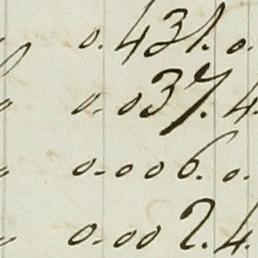 " 0.431.0.
" 0.037.4.
" 0.006.0.
" 0.002.4.